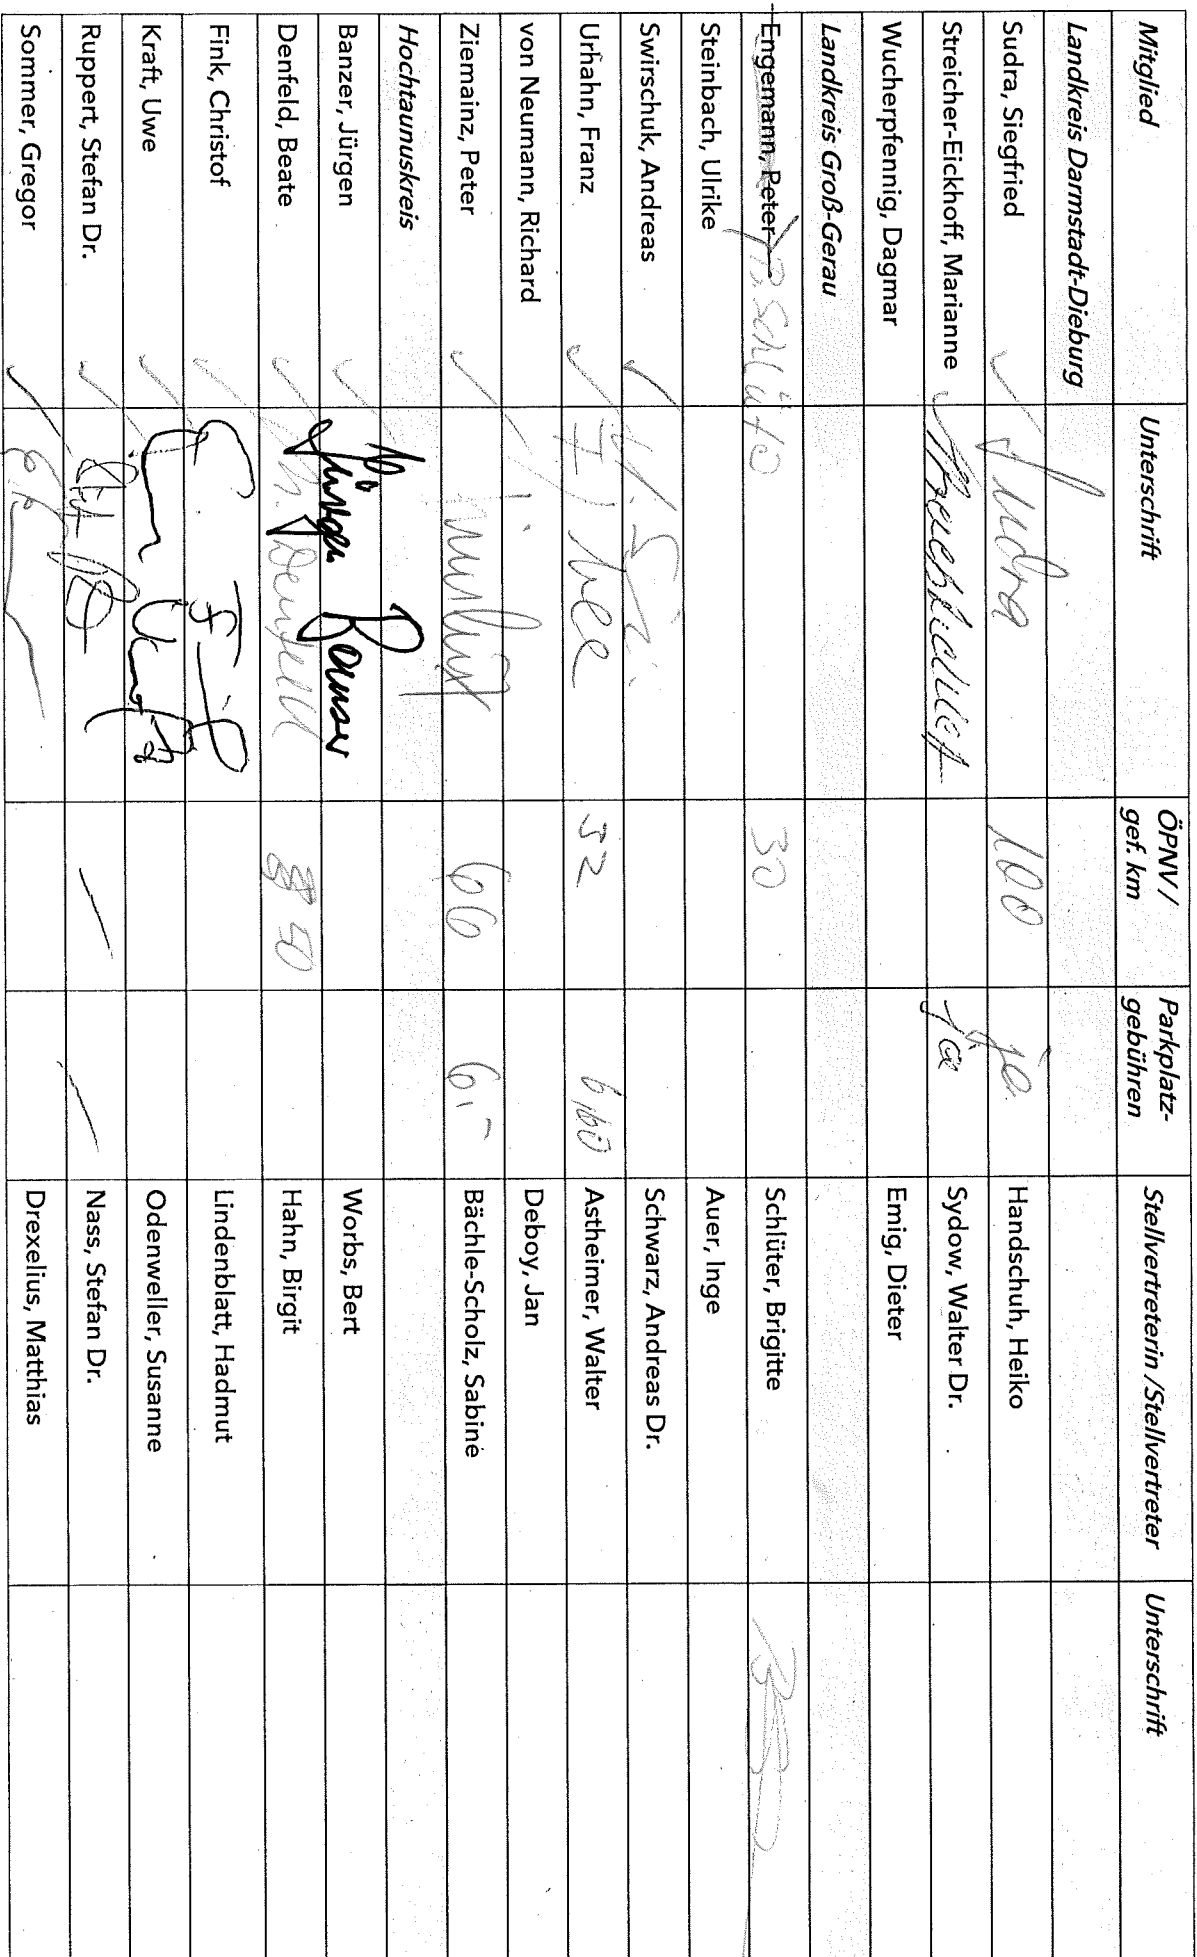 Mitglied Unterschrift ÖPNV / gef. km Parkplatz-gebühren Stellvertreterin /Stellvertreter Unterschrift
Landkreis Darmstadt-Dieburg
Sudra, Siegfried Sudra 100 ja Handschuh, Heiko
Streicher-Eickhoff, Marianne ja Sydow, Walter Dr.
Wucherpfennig, Dagmar Emig, Dieter
Landkreis Groß-Gerau
Engemann, Peter 30 Schlüter, Brigitte
Steinbach, Ulrike Auer, Inge
Swirschuk, Andreas Schwarz, Andreas Dr.
Urhahn, Franz 52 6,60 Astheimer, Walter
von Neumann, Richard Deboy, Jan
Ziemainz, Peter 66 6,- Bächle-Scholz, Sabine
Hochtaunuskreis
Banzer, Jürgen Jürgen Banzer Worbs, Bert
Denfeld, Beate Denfeld 50 Hahn, Birgit
Fink, Christof Lindenblatt, Hadmut
Kraft, Uwe Odenweller, Susanne
Ruppert, Stefan Dr. Nass, Stefan Dr.
Sommer, Gregor Drexelius, Matthias